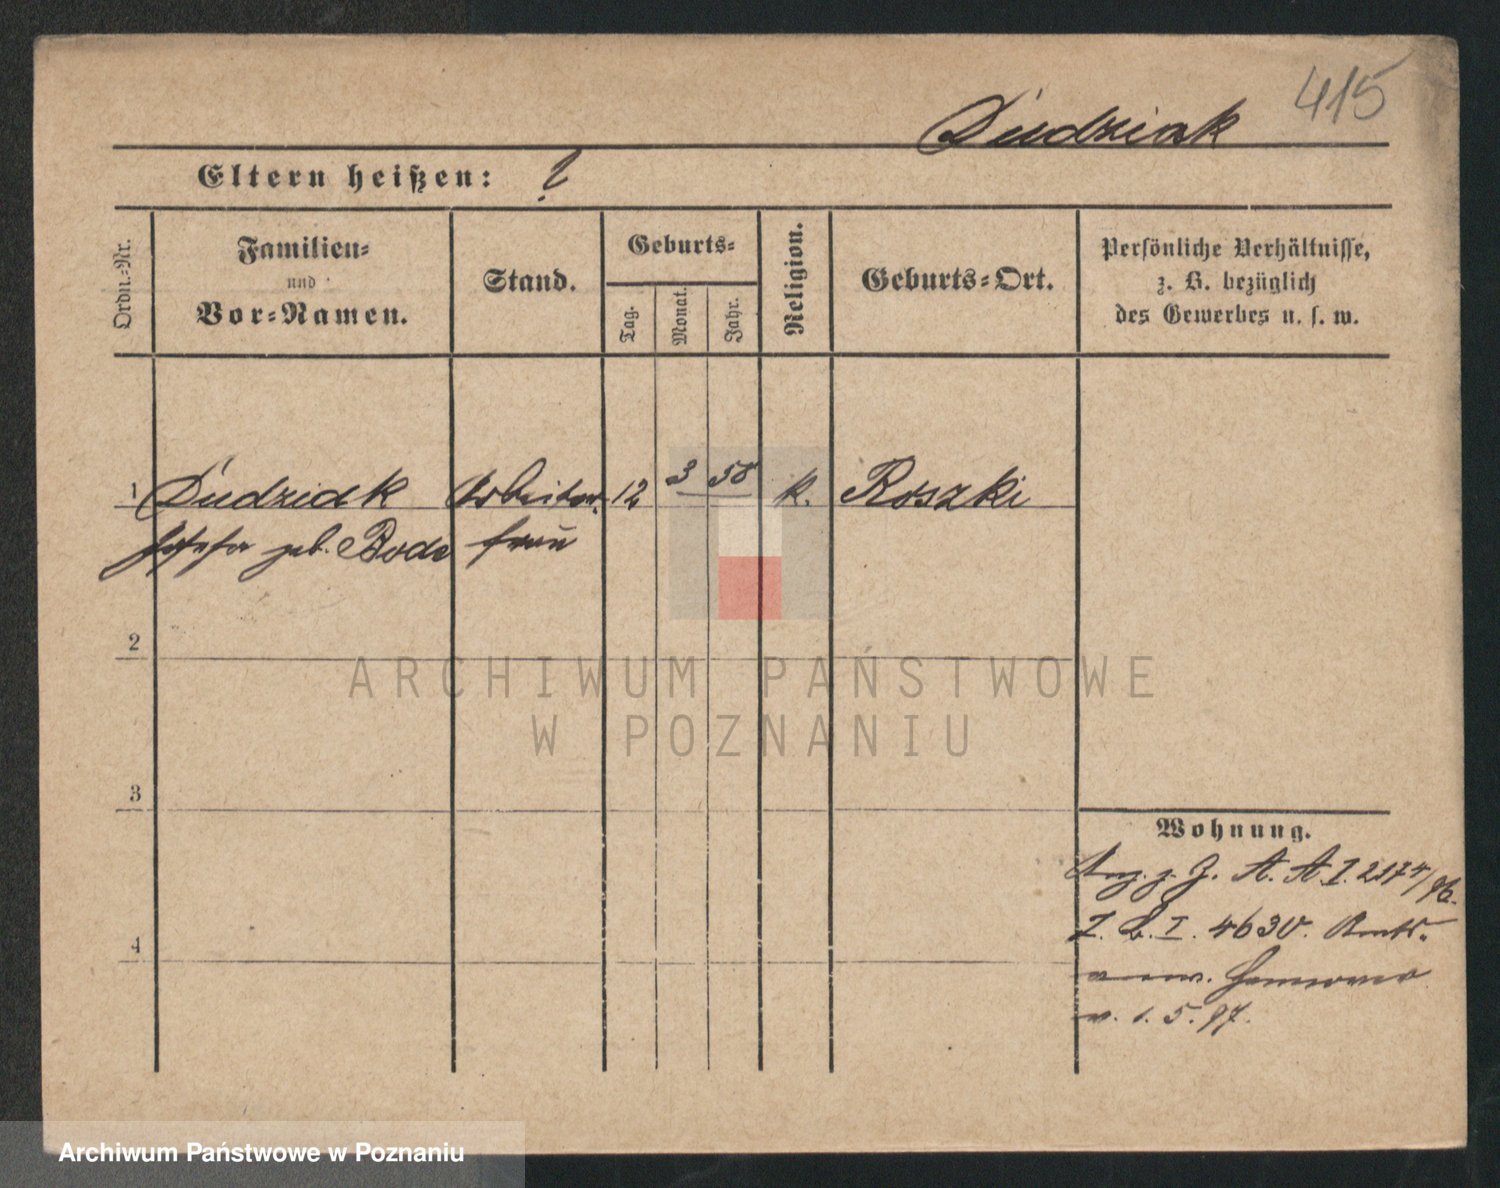 415
Dudziak
Eltern heißen: ?
Ordn.-Nr.
Familien-
und
Vor-Namen.
Stand.
Geburts-
Tag.
Monat.
Jahr.
Religion.
Geburts-Ort.
Persönliche Verhältnisse,
z. B. bezüglich
des Gewerbes u. s. w.
1 Dudziak Arbeiter- 12 3 58 k. Roszki
Josefa geb. Bode frau
2
3
4
Wohnung.
z. Z. A. A. I. 2174/96.
I. 4630.
Hannover
v. 1. 5. 97.
ARCHIWUM PAŃSTWOWE
W POZNANIU
Archiwum Państwowe w Poznaniu